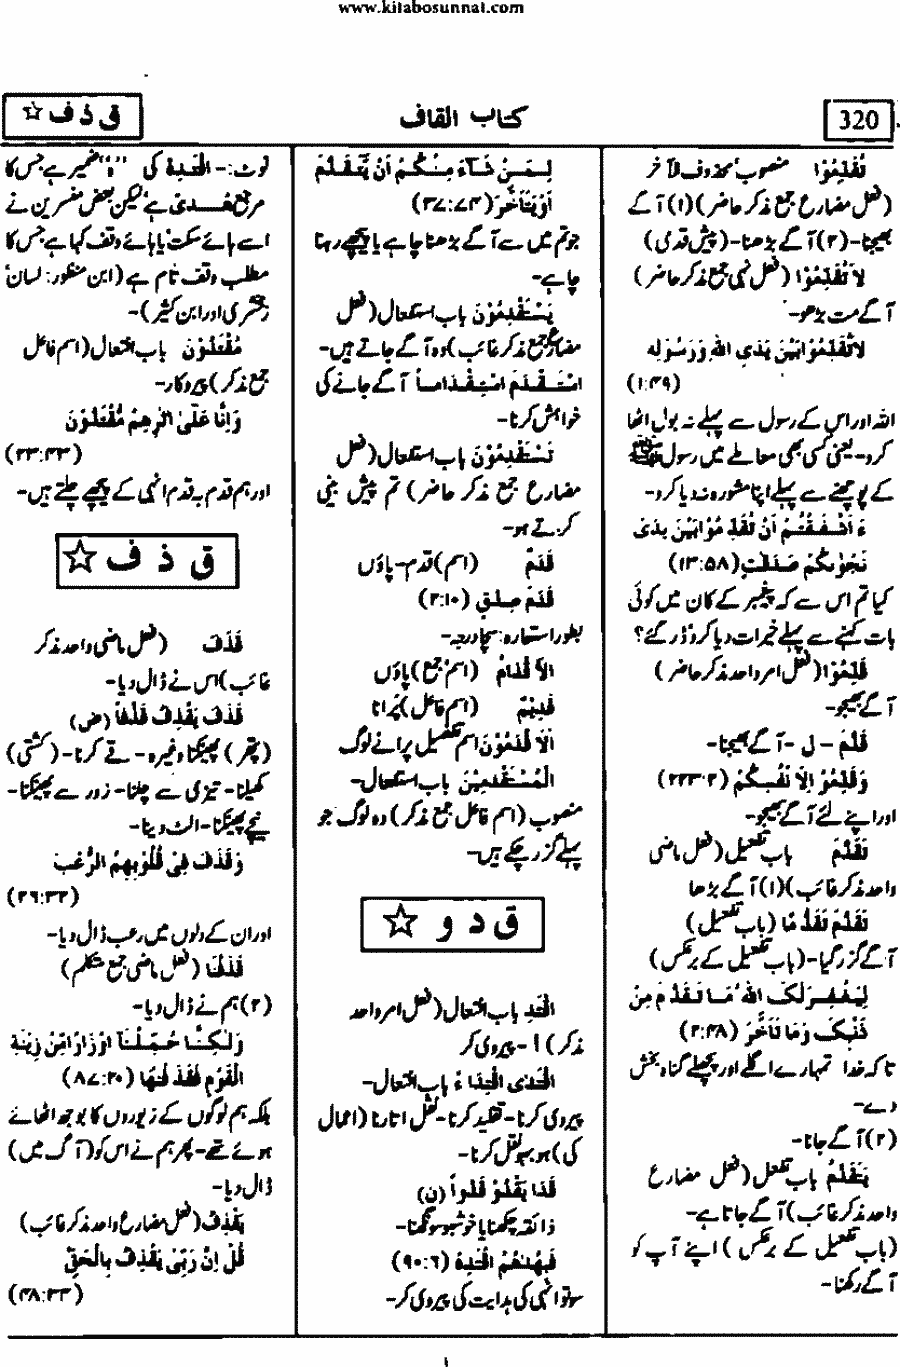 www.kitabosunnat.com
320
کتاب القاف
ق ذ ف ☆
تُقَدِّمُوْا منصوب محذوف الآخر
(فعل مضارع جمع مذکر حاضر) (۱) آگے
بھیجنا-(۲) آگے بڑھنا-(پیش قدمی)
لاَ تُقَدِّمُوْا (فعل نہی جمع مذکر حاضر)
آگے مت بڑھو-
لاَتُقَدِّمُوْا بَيْنَ يَدَىِ اللهِ وَرَسُوْلِهِ
(۱:۴۹)
اللہ اور اس کے رسول سے پہلے نہ بول اٹھا
کرو-یعنی کسی بھی معاملے میں رسول ﷺ
کے پوچھنے سے پہلے اپنا مشورہ نہ دیا کرو-
ءَ اَشْفَقْتُمْ اَنْ تُقَدِّ مُوْا بَيْنَ يَدَىْ
نَجْوٰىكُمْ صَدَقٰتٍ (۱۳:۵۸)
کیا تم اس سے کہ پیغمبر کے کان میں کوئی
بات کہنے سے پہلے خیرات دیا کرو ڈر گئے؟
قَدِّمُوْا (فعل امر واحد مذکر حاضر)
آگے بھیجو-
قَدَّمَ - لِ -آگے بھیجنا-
وَقَدِّمُوْ الِاَ نْفُسِكُمْ (۲۲۳:۲)
اور اپنے لئے آگے بھیجو-
تَقَدَّمَ باب تفعیل (فعل ماضی
واحد مذکر غائب) (۱) آگے بڑھا
تَقَدَّمَ تَقَدُّ مًا (باب تفعیل)
آگے گزر گیا-(باب تفعیل کے برعکس)
لِيَغْفِرَلَكَ اللهُ مَا تَقَدَّ مَ مِنْ
ذَنْبِكَ وَمَا تَاَخَّرَ (۲:۴۸)
تاکہ خدا تمہارے اگلے اور پچھلے گناہ بخش
دے-
(۲) آگے جانا-
يَتَقَدَّمُ باب تفعل (فعل مضارع
واحد مذکر غائب) آگے جاتا ہے-
(باب تفعیل کے برعکس) اپنے آپ کو
آگے رکھنا-
لِمَنْ شَآءَ مِنْكُمْ اَنْ يَّتَقَدَّمَ
اَوْيَتَاَخَّرَ (۳۷:۷۴)
جو تم میں سے آگے بڑھنا چاہے یا پیچھے رہنا
چاہے-
يَسْتَقْدِمُوْنَ باب استفعال (فعل
مضارع جمع مذکر غائب) وہ آگے جاتے ہیں-
اسْتَقْدَمَ اسْتِقْدَاماً آگے جانے کی
خواہش کرنا-
تَسْتَقْدِمُوْنَ باب استفعال (فعل
مضارع جمع مذکر حاضر) تم پیش بینی
کرتے ہو-
قَدَمٌ (اسم) قدم-پاؤں
قَدَمَ صِدْقٍ (۲:۱۰)
بطور استعارہ: سچا درجہ-
الاَ قْدَامُ (اسم جمع) پاؤں
قَدِيْمٌ (اسم فاعل) پُرانا
اَلاَ قْدَمُوْنَ اسم تفضیل پرانے لوگ
الْمُسْتَقْدِمِيْنَ باب استفعال-
منصوب (اسم فاعل جمع مذکر) وہ لوگ جو
پہلے گزر چکے ہیں-
ق د و ☆
اقْتَدِ باب افتعال (فعل امر واحد
مذکر) ا -پیروی کر
اقْتَدَى اقْتِدَا ءً باب افتعال-
پیروی کرنا-تقلید کرنا-نقل اتارنا (اعمال
کی) ہو بہو نقل کرنا-
قَدَا يَقْدُوْ قَدْواً (ن)
ذائقہ چکھنا یا خوشبو سونگھنا-
فَبِهُدٰهُمُ اقْتَدِهْ (۹۰:۶)
سو تو انہی کی ہدایت کی پیروی کر-
نوٹ:- اقْتَدِهْ کی ''ہ'' ضمیر ہے جس کا
مرجع ھُدٰی ہے' لیکن بعض مفسرین نے
اسے ہائے سکت' یا ہائے وقف کہا ہے جس کا
مطلب وقف تام ہے (ابن منظور: لسان'
زمخشری اور ابن کثیر)-
مُقْتَدُوْنَ باب افتعال (اسم فاعل
جمع مذکر) پیروکار-
وَاِنَّا عَلٰىٓ اٰثٰرِهِمْ مُّقْتَدُوْنَ
(۲۳:۴۳)
اور ہم قدم بقدم انہی کے پیچھے چلتے ہیں-
ق ذ ف ☆
قَذَفَ (فعل ماضی واحد مذکر
غائب) اس نے ڈال دیا-
قَذَفَ يَقْذِفُ قَذْفاً (ض)
(پتھر) پھینکنا وغیرہ-قے کرنا-(کشتی)
کھیلنا-تیزی سے چلنا-زور سے پھینکنا-
نیچے پھینکنا-الٹ دینا-
وَقَذَفَ فِىْ قُلُوْبِهِمُ الرُّعْبَ
(۲۶:۳۳)
اور ان کے دلوں میں رعب ڈال دیا-
قَذَفْنَا (فعل ماضی جمع متکلم)
(۲) ہم نے ڈال دیا-
وَلٰكِنَّا حُمِّلْنَآ اَوْزَارًا مِّنْ زِيْنَةِ
الْقَوْمِ فَقَذَ فْنٰهَا (۸۷:۲۰)
بلکہ ہم لوگوں کے زیوروں کا بوجھ اٹھائے
ہوئے تھے-پھر ہم نے اس کو (آگ میں)
ڈال دیا-
يَقْذِفُ (فعل مضارع واحد مذکر غائب)
قُلْ اِنَّ رَبِّىْ يَقْذِفُ بِالْحَقِّ
(۴۸:۳۴)